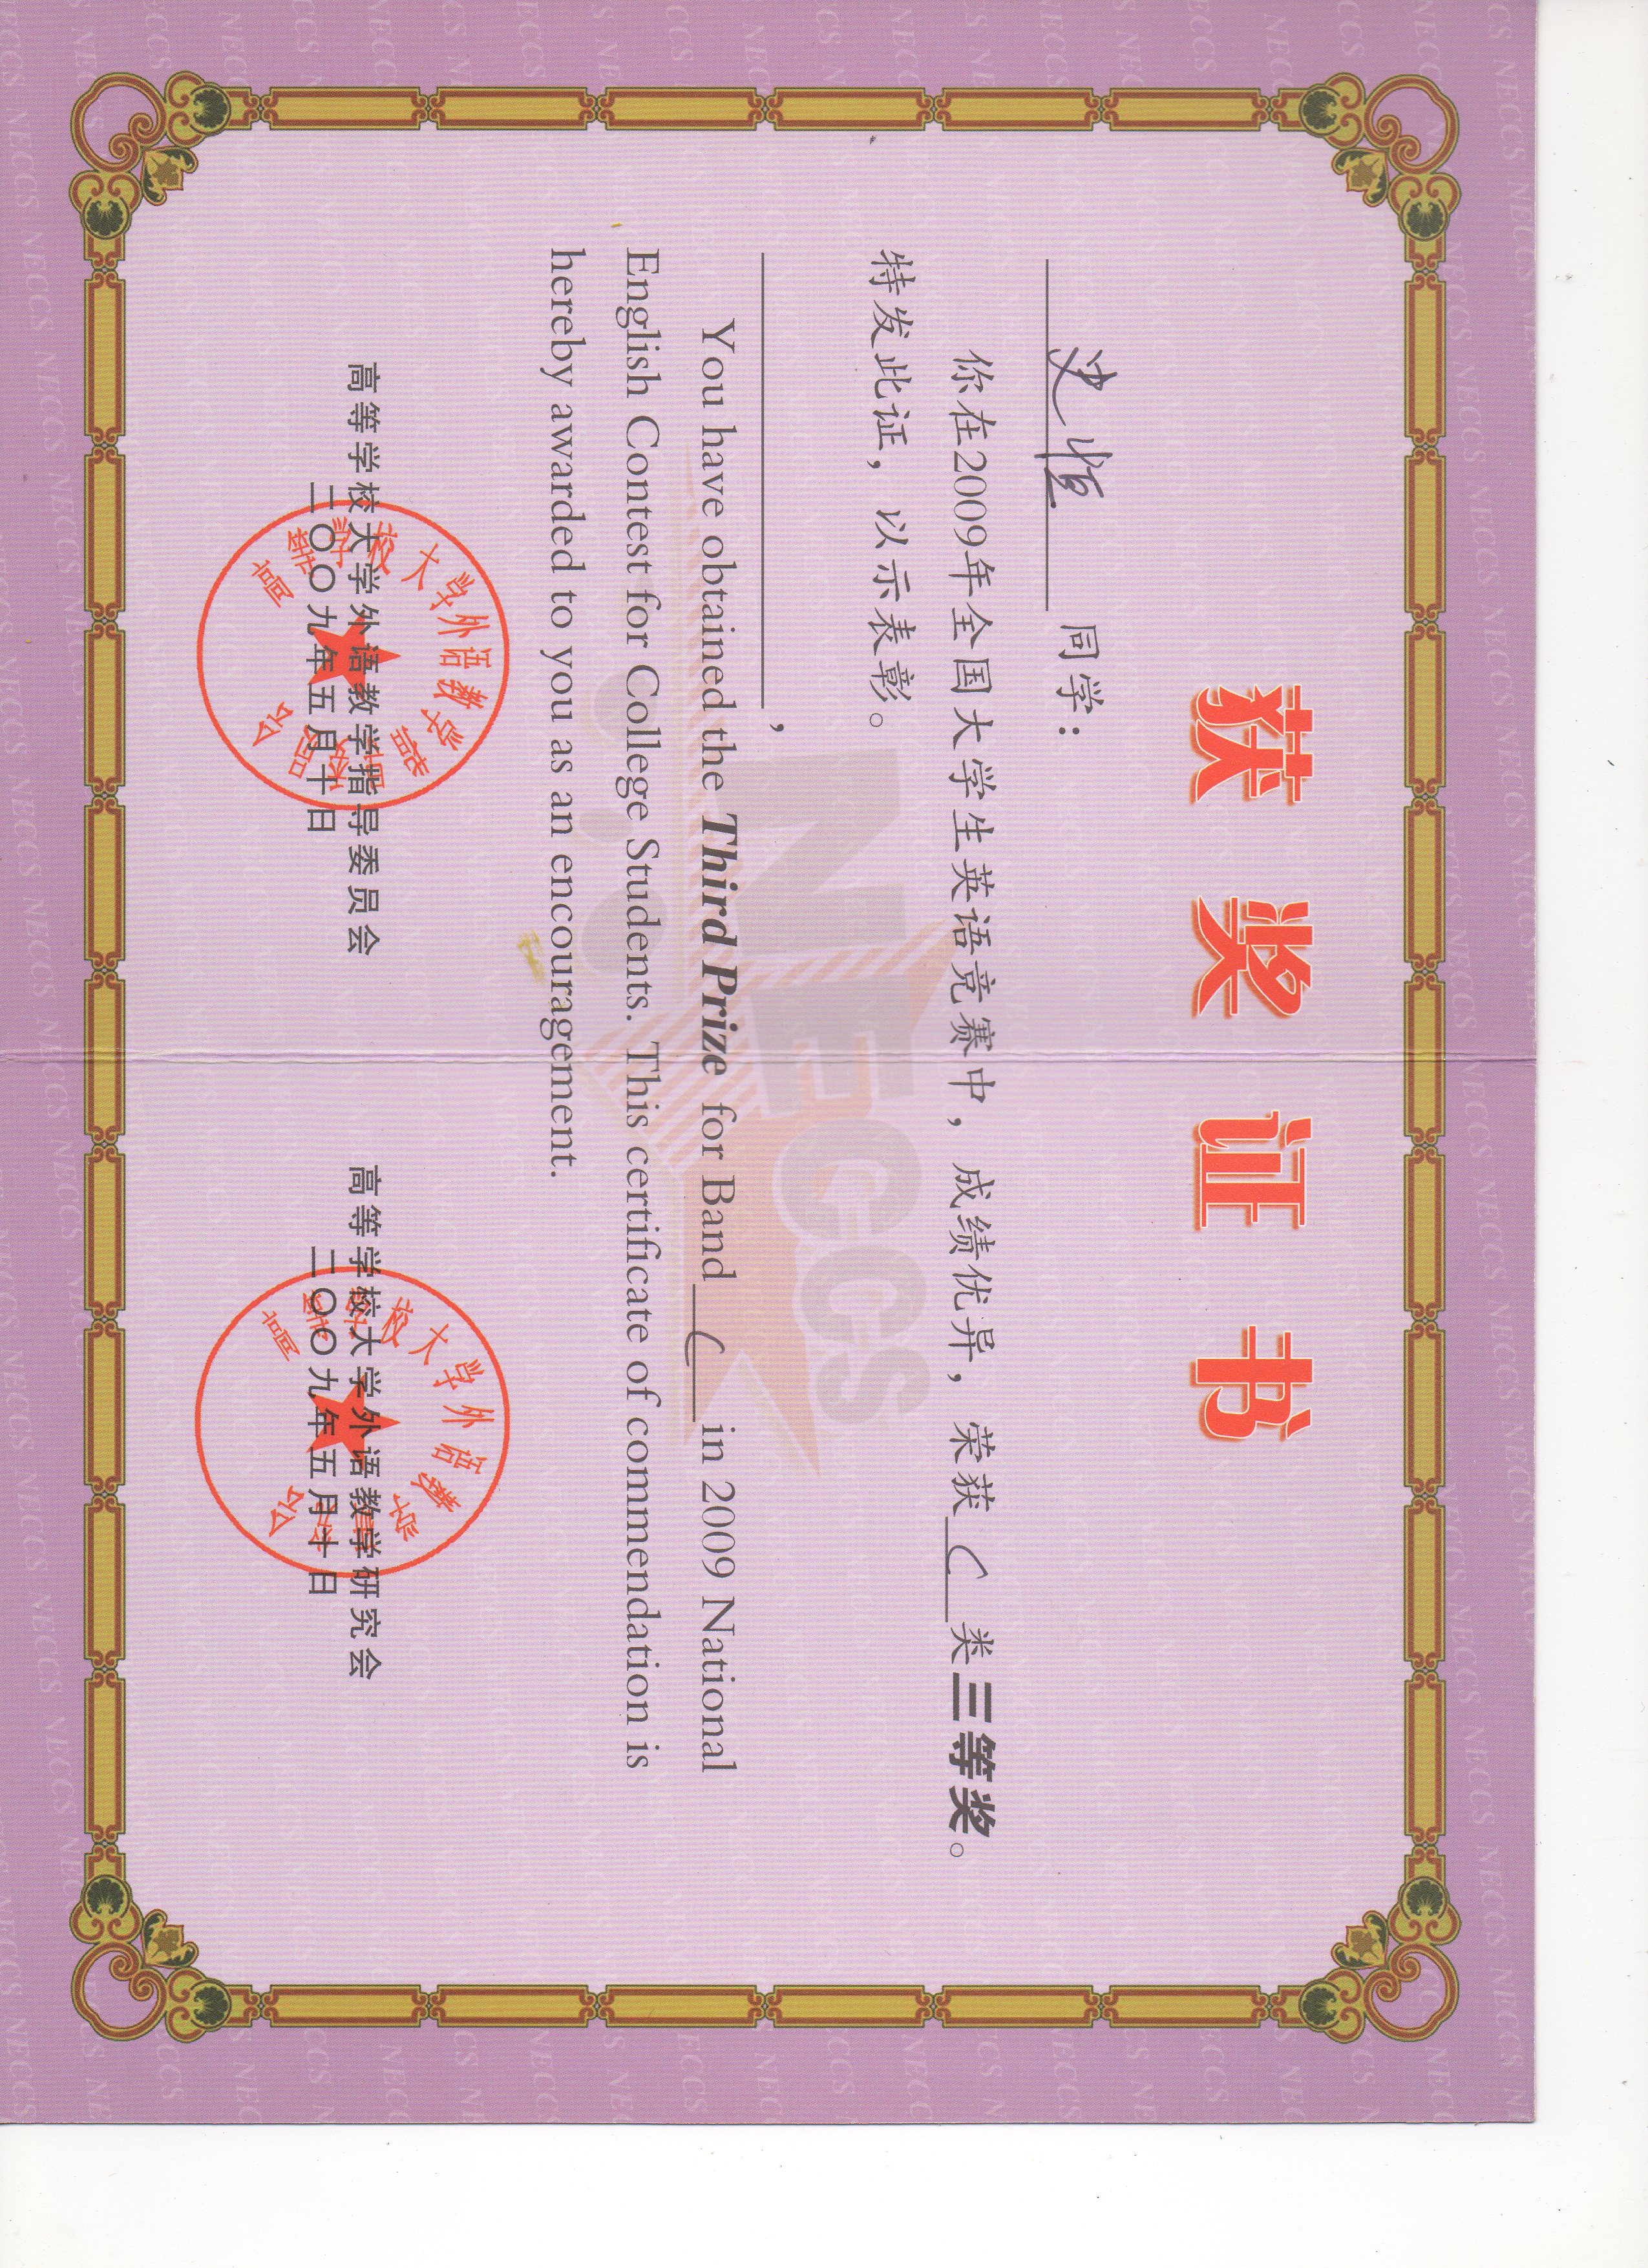 获奖证书
史恒 同学：
你在2009年全国大学生英语竞赛中，成绩优异，荣获 C 类三等奖。
特发此证，以示表彰。
,
You have obtained the Third Prize for Band C in 2009 National
English Contest for College Students. This certificate of commendation is
hereby awarded to you as an encouragement.
NECCS
高等学校大学外语教学指导委员会
二〇〇九年五月十日
高等学校大学外语教学指导委员会
高等学校大学外语教学研究会
二〇〇九年五月十日
高等学校大学外语教学研究会